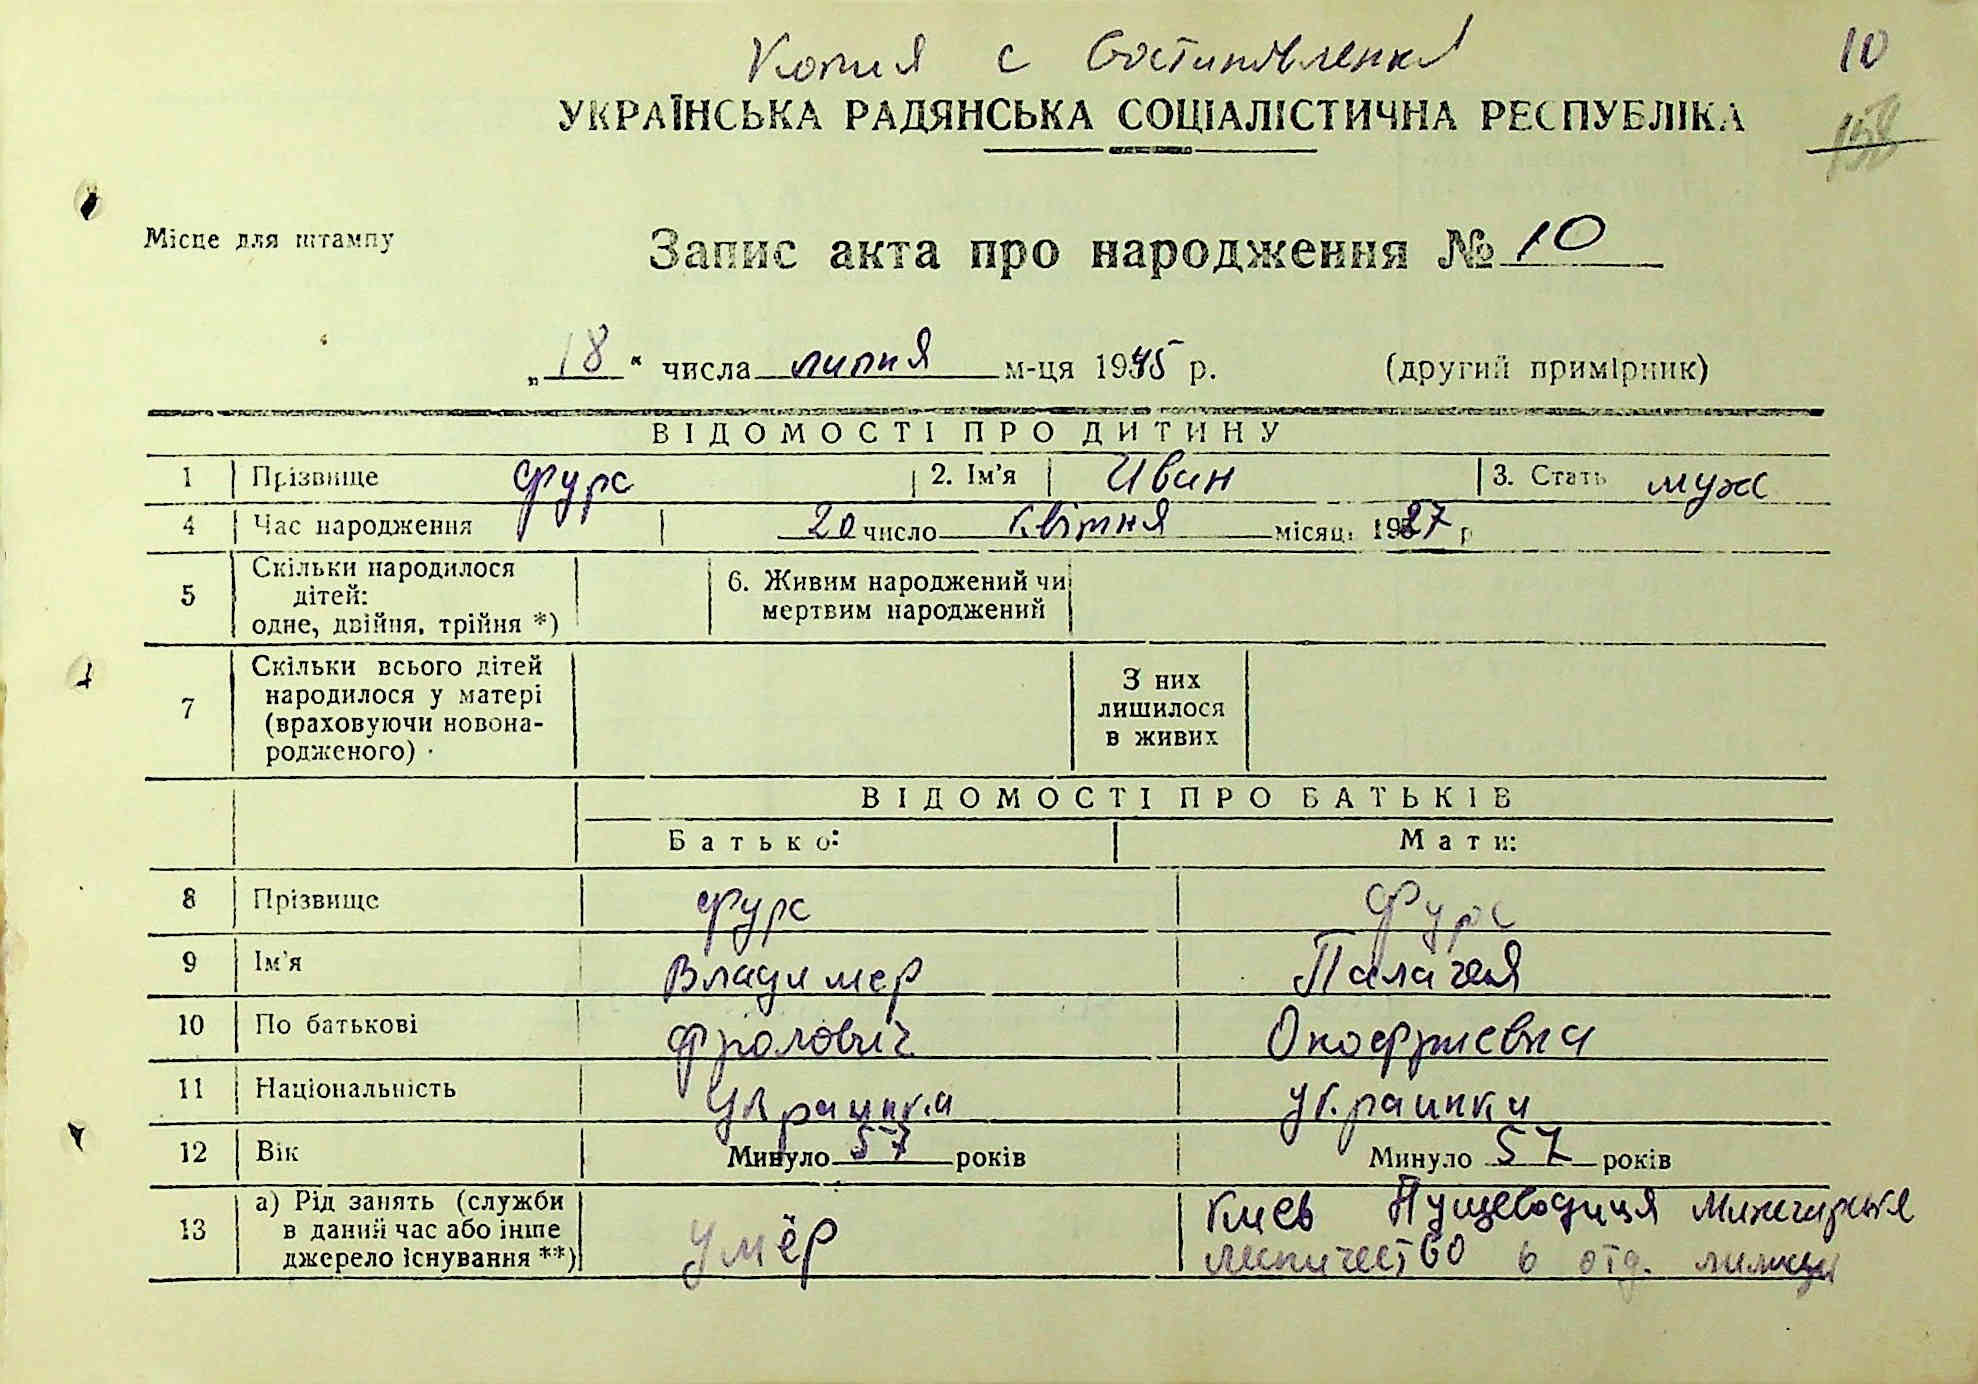 Копия с востановления
10
УКРАЇНСЬКА РАДЯНСЬКА СОЦІАЛІСТИЧНА РЕСПУБЛІКА
158
Місце для штампу
Запис акта про народження № 10
„18“ числа липня м-ця 1945 р. (другий примірник)
ВІДОМОСТІ ПРО ДИТИНУ
1 Прізвище Фурс 2. Ім'я Иван 3. Стать муж
4 Час народження 20 число квітня місяця 1927 р
5 Скільки народилося дітей: одне, двійня, трійня *) 6. Живим народжений чи мертвим народжений
7 Скільки всього дітей народилося у матері (враховуючи новонародженого) З них лишилося в живих
ВІДОМОСТІ ПРО БАТЬКІВ
Батько: Мати:
8 Прізвище Фурс Фурс
9 Ім'я Владимер Палагея
10 По батькові Фролович Онофриевна
11 Національність Украинка украинка
12 Вік Минуло 57 років Минуло 57 років
13 а) Рід занять (служби в даний час або інше джерело існування **) умёр Киев Пущеводиця
отд.